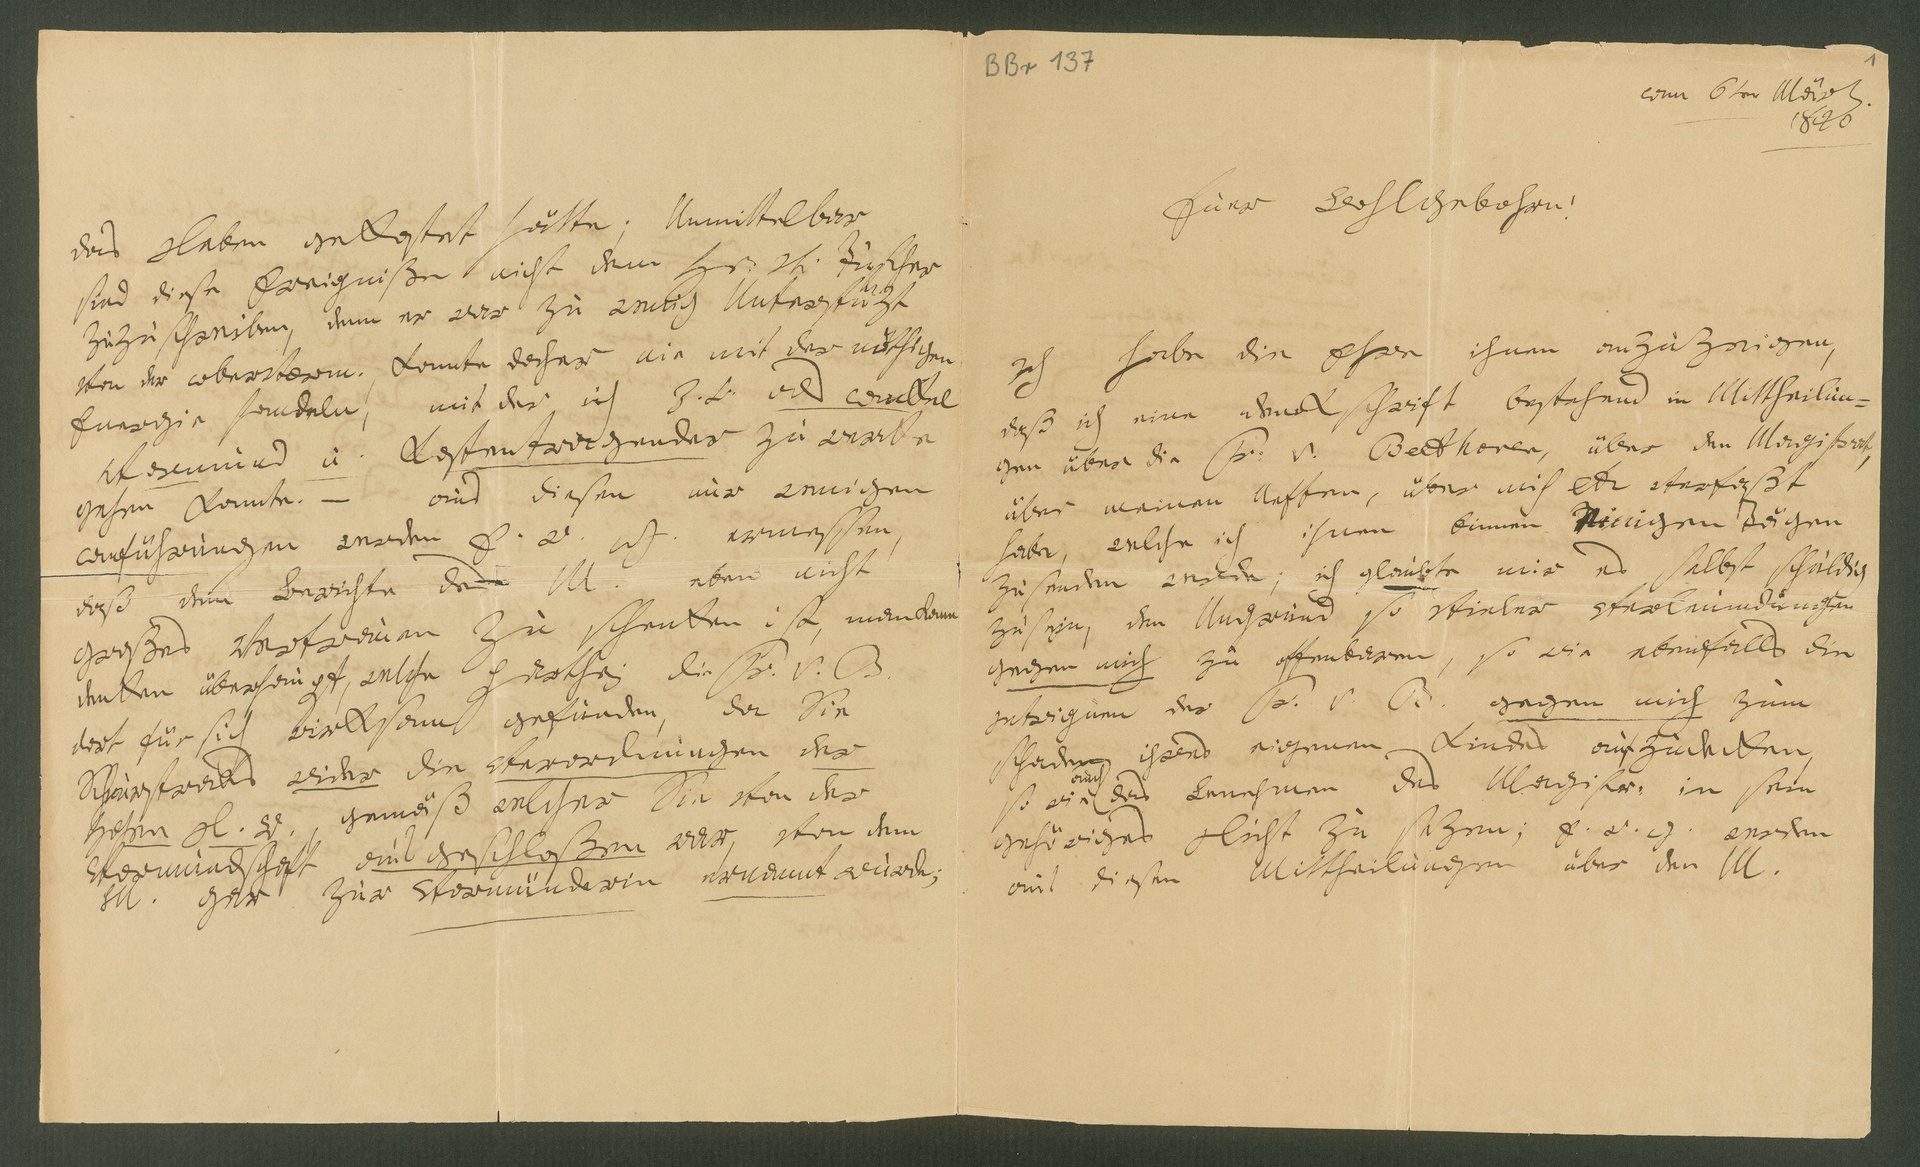 BBr 137
1
vom 6ten März
1820
Euer wohlgebohrn!
Ich habe die Ehre ihnen anzuzeigen,
daß ich eine denkschrift bestehend in Mittheilun=
gen über die Fr. v. Beethoven, über den Magistrat,
über meinen Neffen, über mich etc verfaßt
habe, welche ich ihnen binnen Einigen Tägen
zusenden werde; ich glaubte mir es selbst schuldig
zu seyn, den Ungrund so vieler verleumdungen
gegen mich zu offenbaren, so wie ebenfalls die
intriguen der Fr. v. B. gegen mich zum
schaden ihres eigenen Kindes aufzudecken,
so wie auch das Benehmen des Magistr. in sein
gehöriges Licht zu sezen; E. w. g. werden
aus diesen Mittheilungen über den M.
das Leben gekostet hätte; Unmittelbar
sind diese Ereigniße nicht dem Hr. v. Tuscher
zuzuschreiben, denn er war zu wenig Unterstüzt
von der oberVorm. konnte daher nie mit der nöthigen
Energie handeln, mit der ich z.B. als onkel
Vormund u. Kostentragender zu werke
gehen konnte. — aus diesen nur wenigen
anführungen werden E. w. g. ermessen,
daß dem Berichte des M. eben nicht
großes Vertrauen zu schenken ist, man kann
denken überhaupt, welche Parthej die Fr. v. B.
dort für sich wirksam gefunden, da Sie
Schnurstracks wider die Verordnungen der
Hohen L. R., gemäß welcher Sie von der
Vormundschaft ausgeschloßen war, von dem
M. gar zur Vormünderin ernannt wurde;